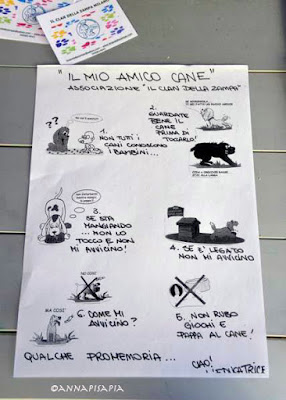 IL CLAN DELLA ZAMPA
"IL MIO AMICO CANE"
ASSOCIAZIONE "IL CLAN DELLA ZAMPA"
??
1.
NON TUTTI I
CANI CONOSCONO
I BAMBINI...
2.
GUARDATE
BENE IL
CANE
PRIMA DI
TOCCARLO!
3.
SE STA
MANGIANDO
... NON LO
TOCCO E NON
MI AVVICINO!
4. SE E' LEGATO
NON MI AVVICINO
NO COSÌ
MA COSÌ
6. COME MI
AVVICINO?
5. NON RUBO
GIOCHI E
PAPPA AL CANE!
QUALCHE PROMEMORIA...
CIAO!
©ANNAPISAPIA